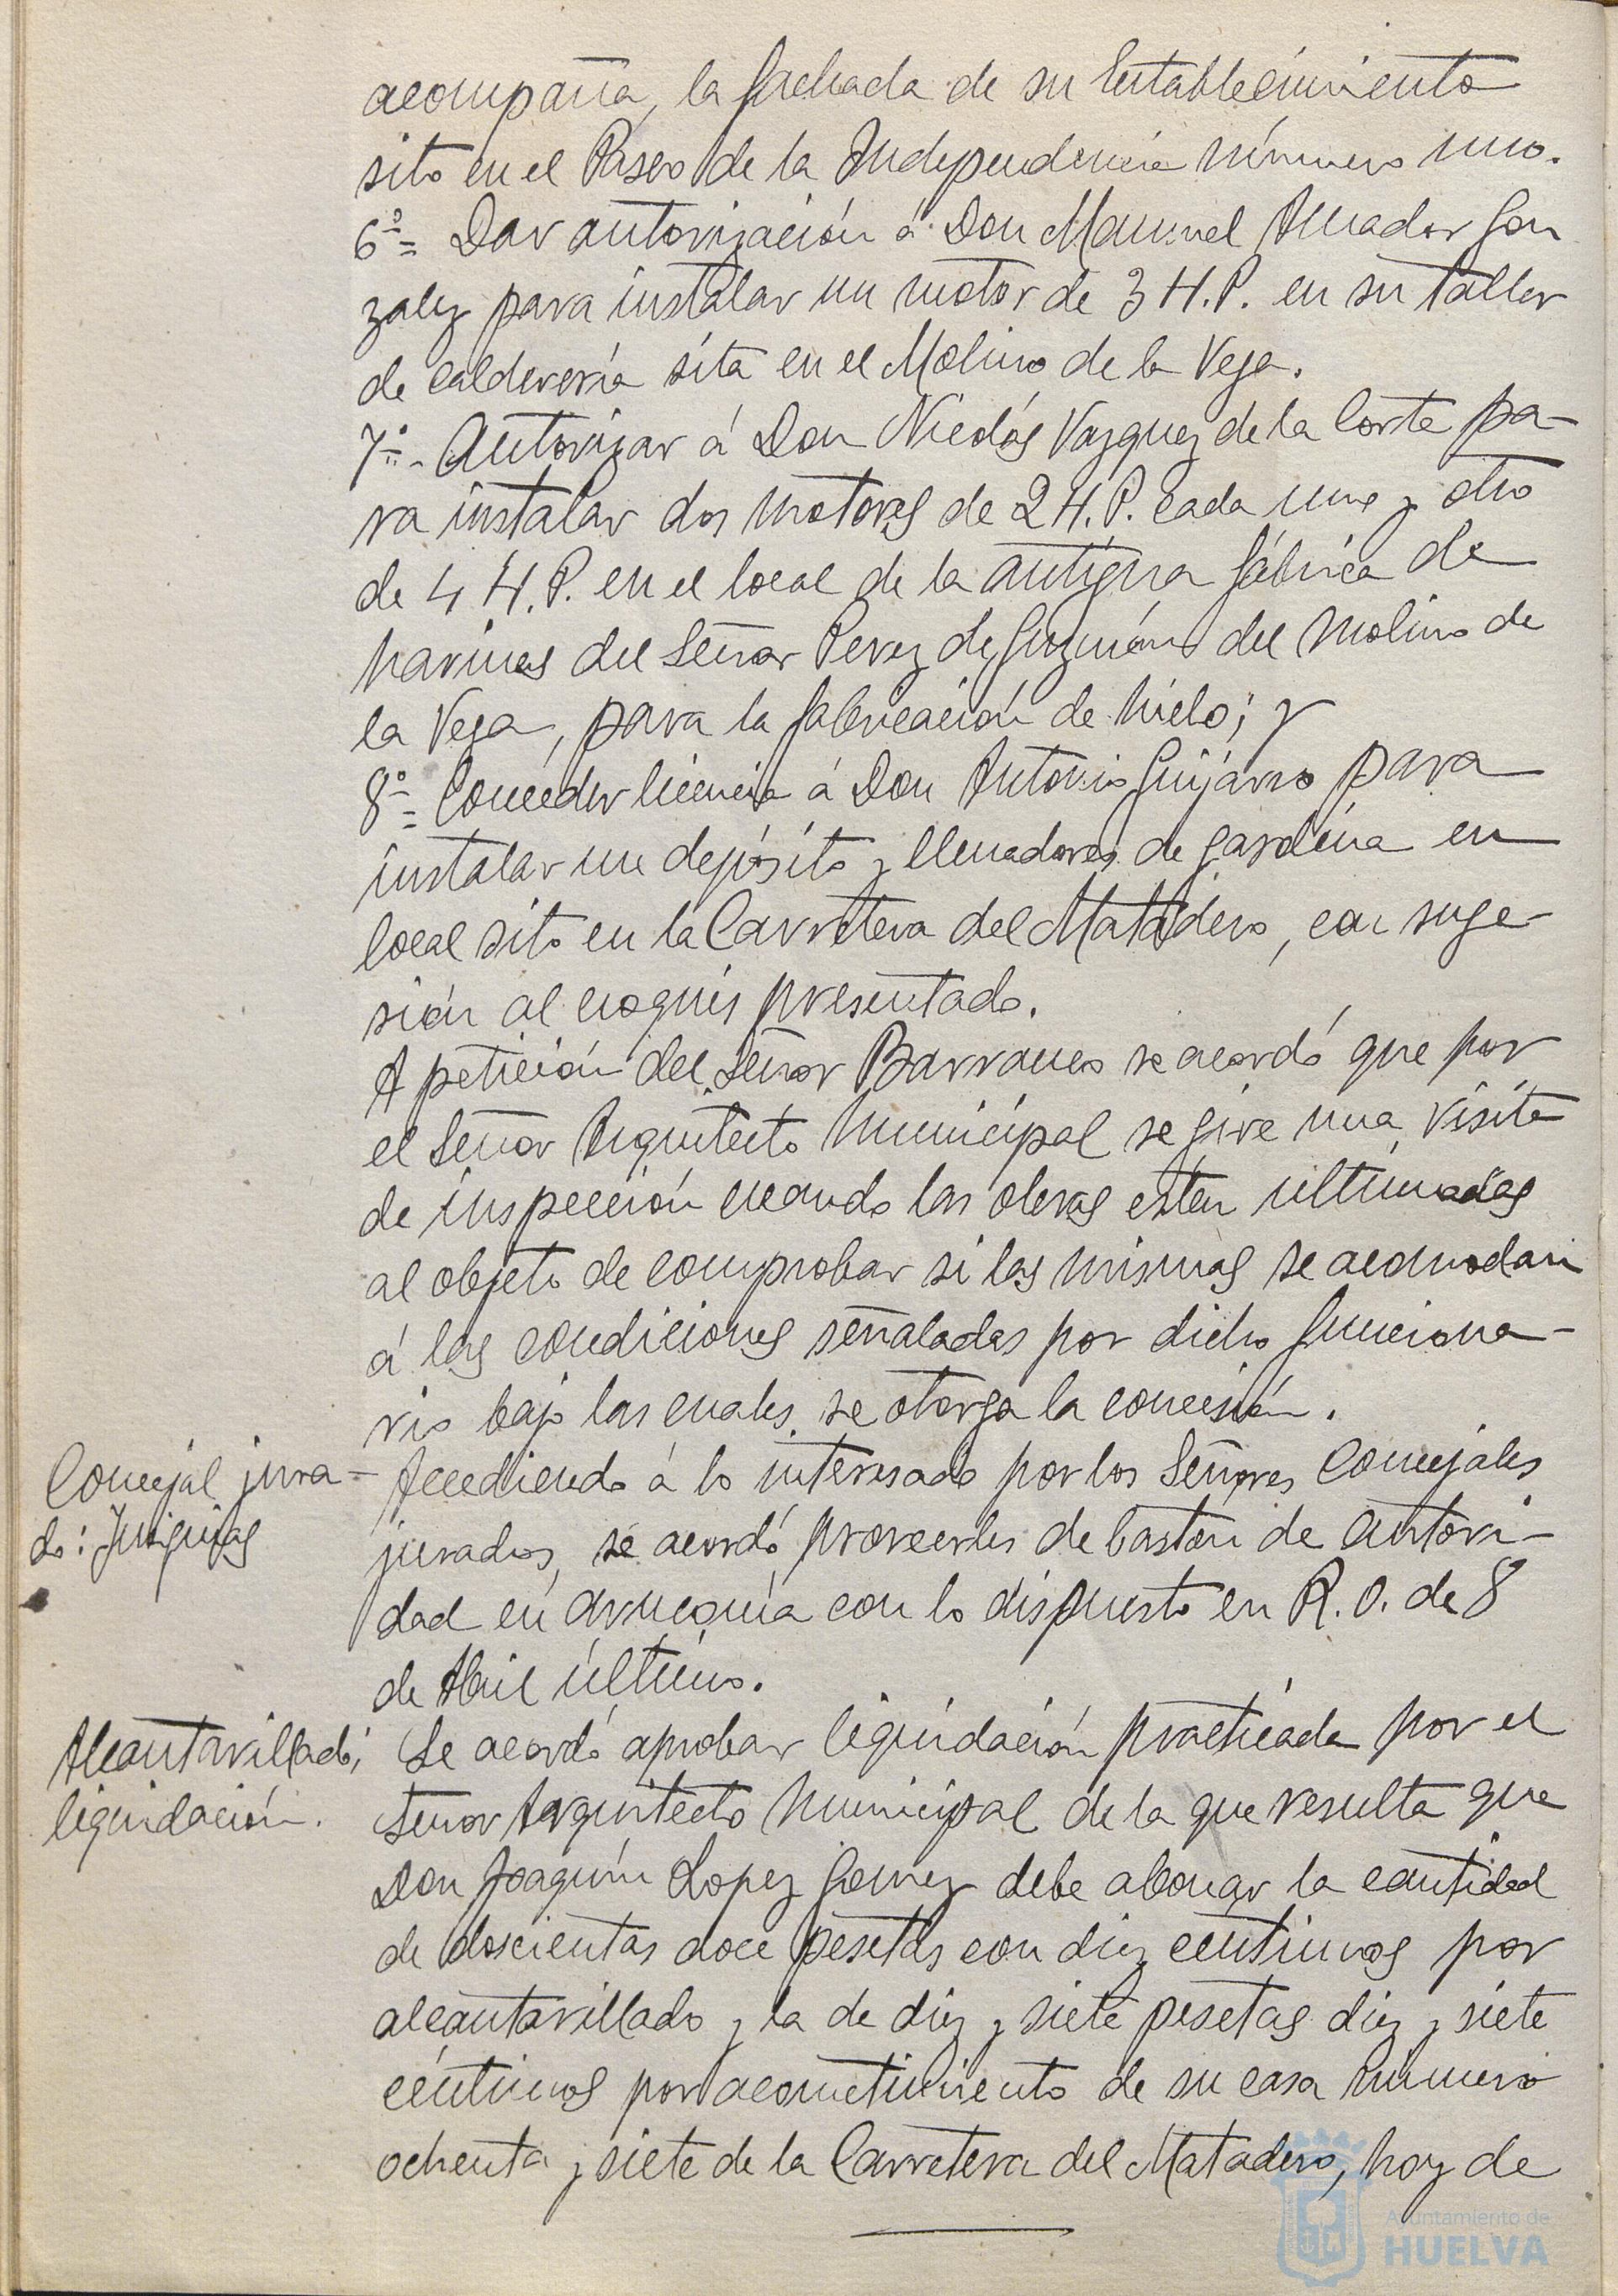 acompaña, la fachada de su Establecimiento
sito en el Paseo de la Independencia número uno.
6º= Dar autorización á Don Manuel Amador Gon
zalez para instalar un motor de 3 H.P. en su taller
de calderería sita en el Molino de la Vega.
7º.- Autorizar á Don Nicolás Vazquez de la Corte pa-
ra instalar dos motores de 2 H.P. cada uno y otro
de 4 H.P. en el local de la antigua fábrica de
harinas del Señor Perez de Guzmán del Molino de
la Vega, para la fabricación de hielo; y
8º= Conceder licencia á Don Antonio Guijarro para
instalar un depósito y llenadores de gasolina en
local sito en la Carretera del Matadero, con suge-
sión al croquis presentado.
A petición del Señor Barranco se acordó que por
el Señor Arquitecto Municipal se gire una visita
de inspección cuando las obras estén ultimadas
al objeto de comprobar si las mismas se acomodan
á las condiciones señaladas por dicho funciona-
rio bajo las cuales se otorga la concesión.
Concejal jura-
do: Insignias
Accediendo á lo interesado por los Señores Concejales
jurados, se acordó proveerles de bastón de autori-
dad en armonía con lo dispuesto en R.O. de 8
de Abril último.
Alcantarillado;
liquidación.
Se acordó aprobar liquidación practicada por el
Señor Arquitecto Municipal de la que resulta que
Don Joaquín Lopez Gomez debe abonar la cantidad
de doscientas doce pesetas con diez centimos por
alcantarillado y la de diez y siete pesetas diez y siete
céntimos por acometimiento de su casa número
ochenta y siete de la Carretera del Matadero, hoy de
Ayuntamiento de
HUELVA